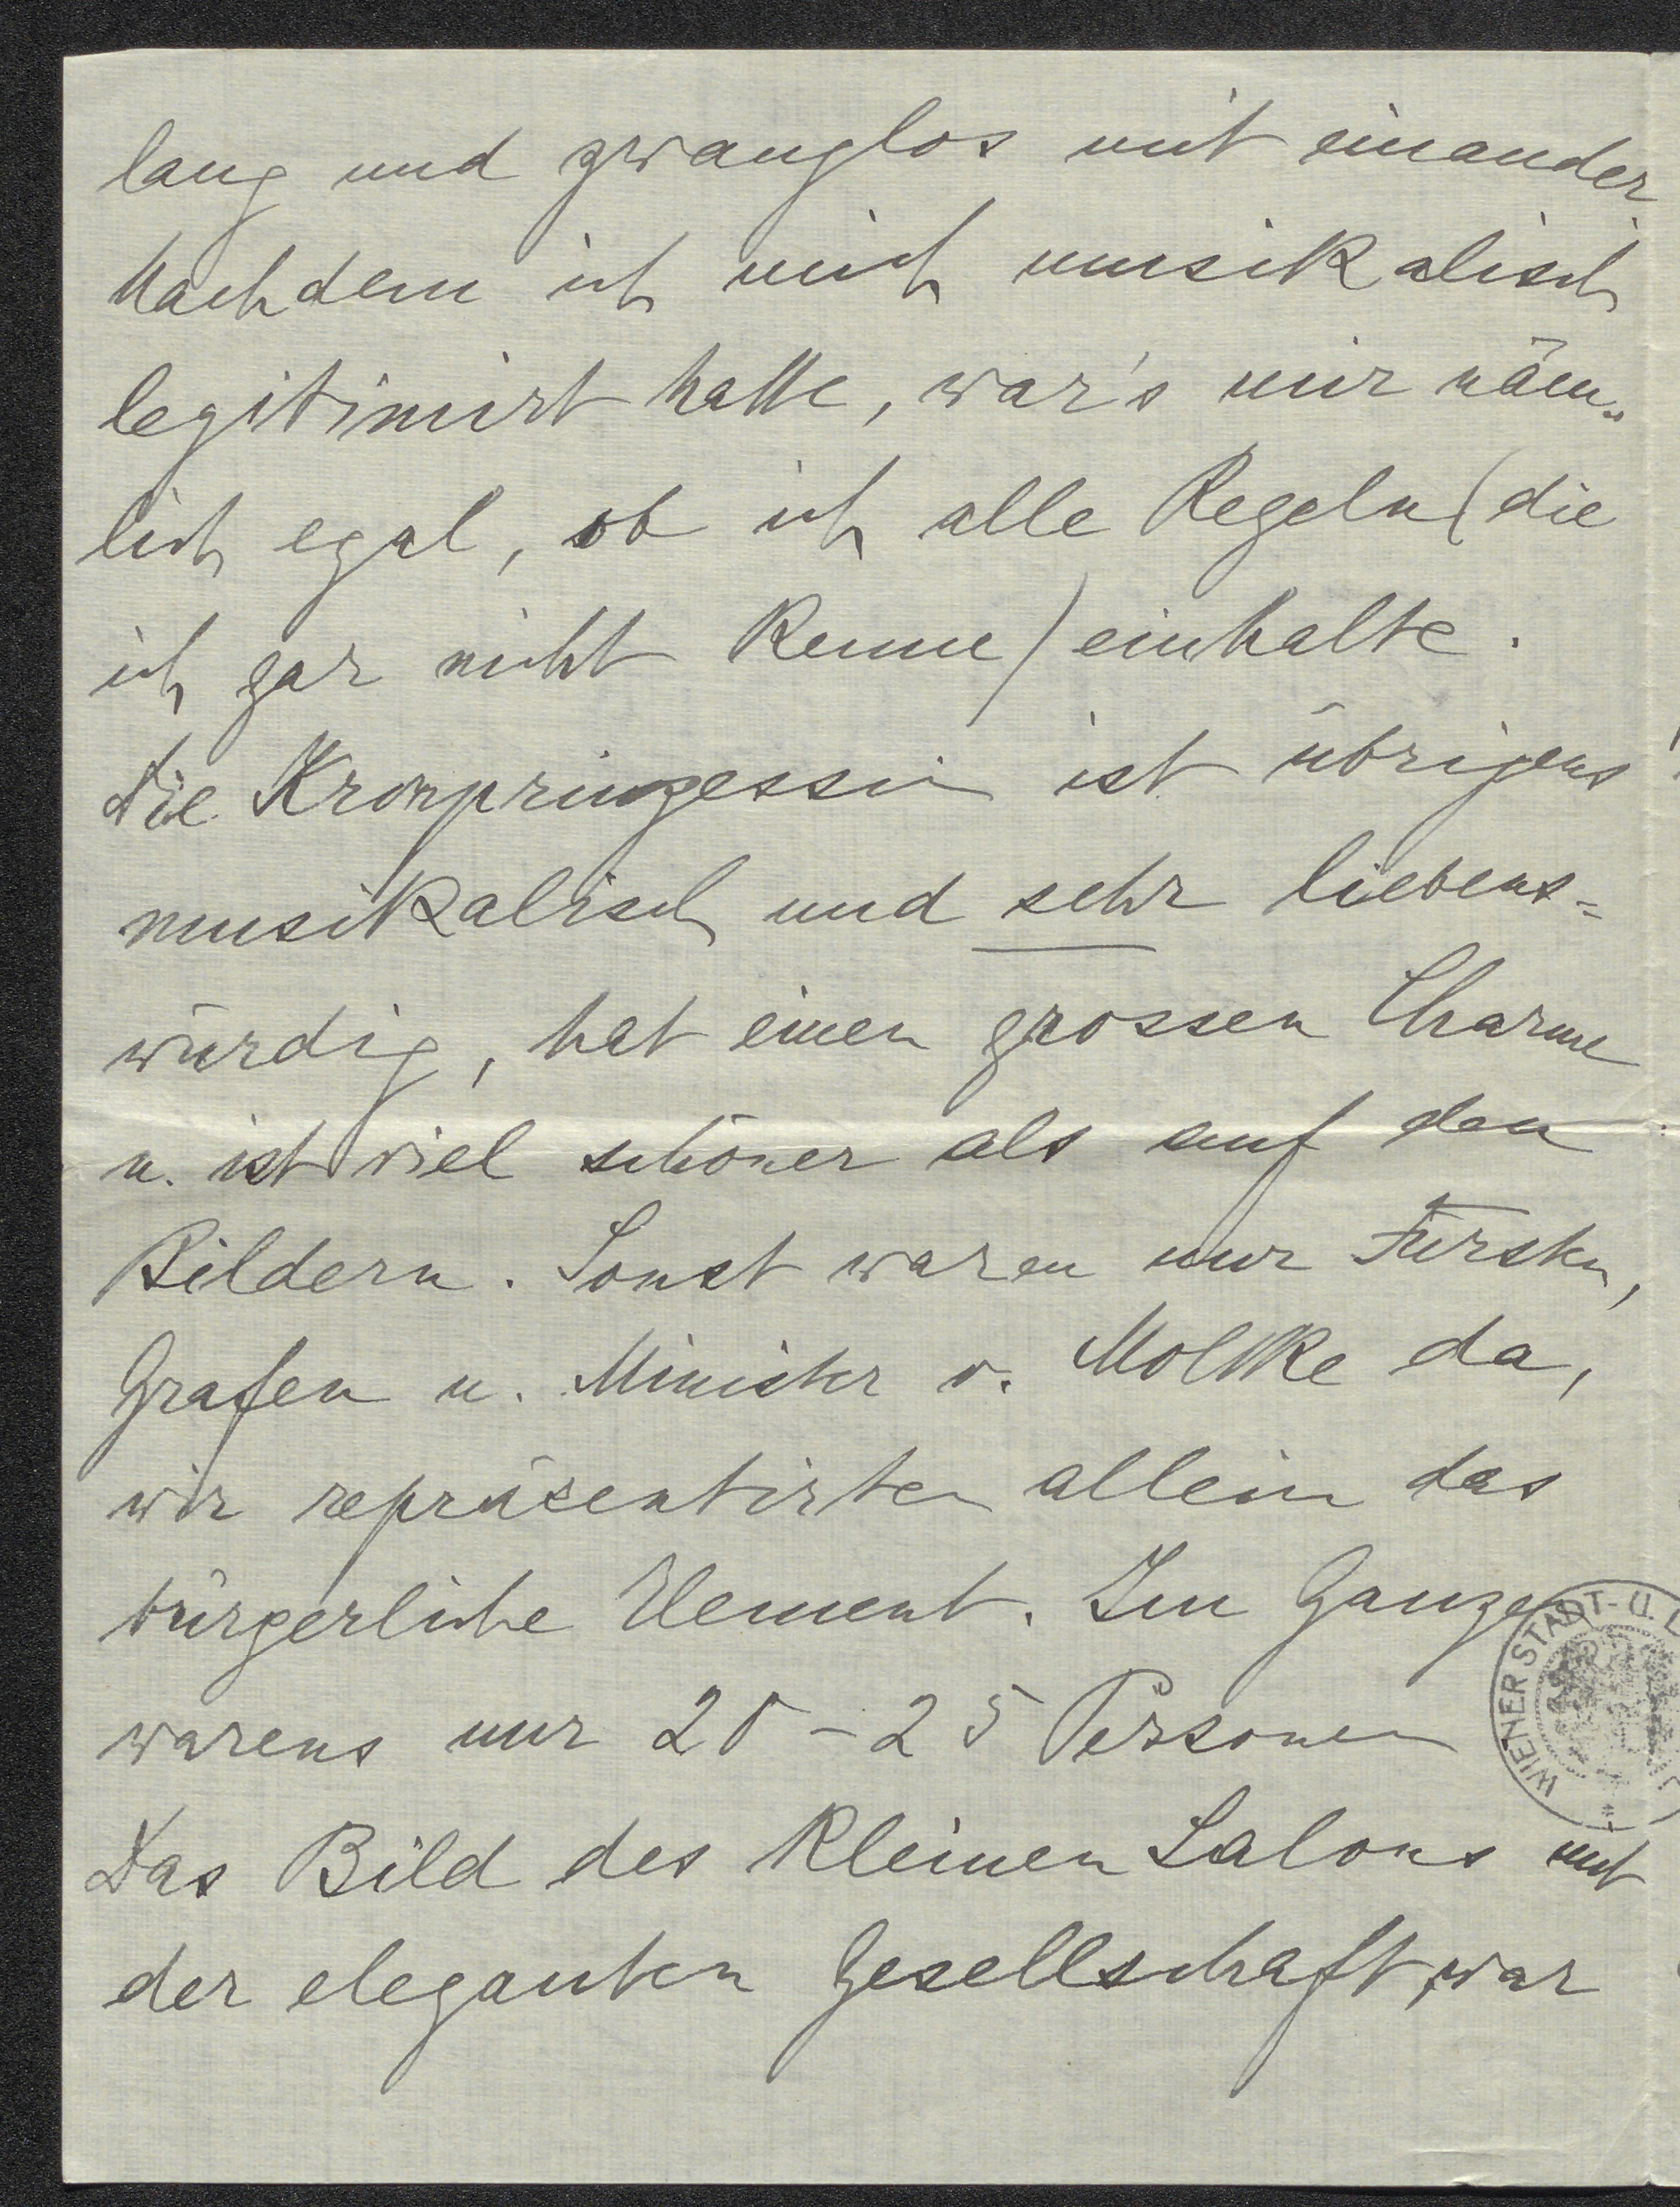 lang und zwanglos mit einander.
Nachdem ich mich musikalisch
legitimirt hatte, war's mir näm-
lich egal, ob ich alle Regeln (die
ich gar nicht kenne) einhalte.
Die Kronprinzessin ist übrigens
musikalisch und sehr liebens=
würdig, hat einen grossen Charme
u. ist viel schöner als auf den
Bildern. Sonst waren nur Fürsten,
Grafen u. Minister v. Moltke da,
wir repräsentirten allein das
bürgerliche Element. Im Ganzen
warens nur 20 - 25 Personen
Das Bild des kleinen Salons mit
der eleganten Gesellschaft, war
WIENER STADT- U. L